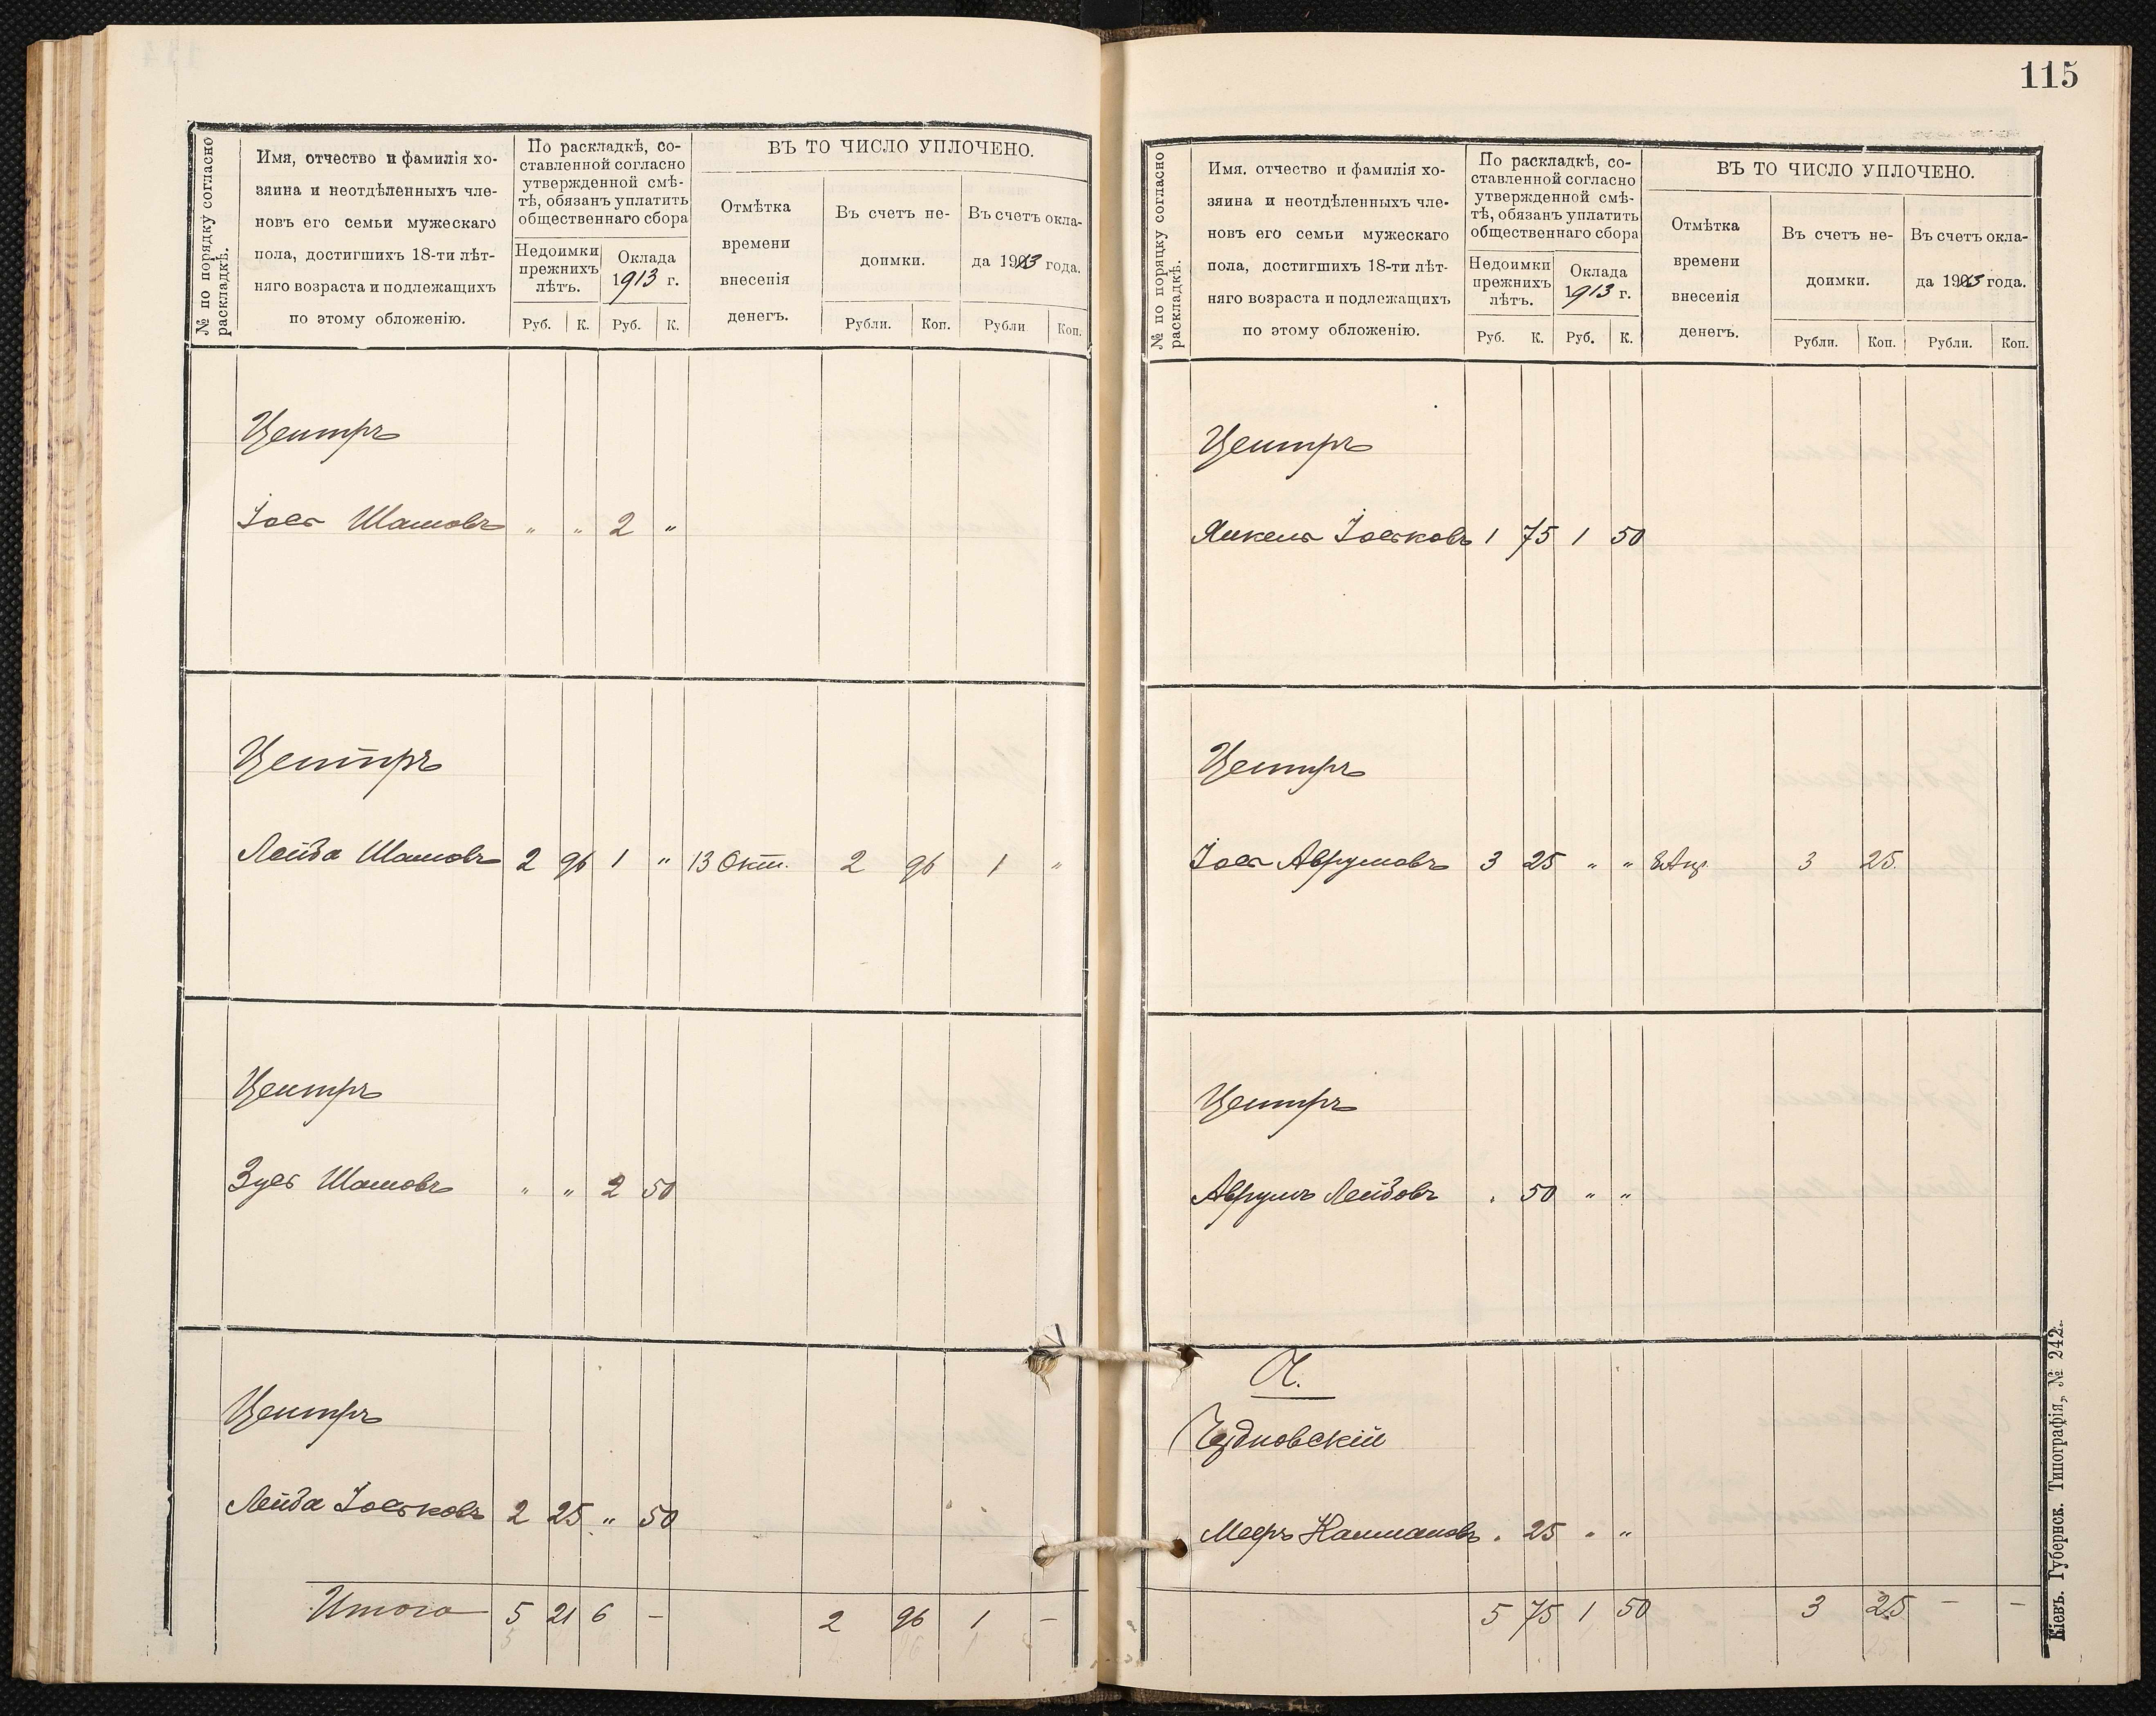 № по порядку согласно
раскладкѣ.
Имя, отчество и фамилія хо-
зяина и неотдѣленныхъ чле-
новъ его семьи мужескаго
пола, достигшихъ 18-ти лѣт-
няго возраста и подлежащихъ
по этому обложенію.
По раскладкѣ, со-
ставленной согласно
утвержденной смѣ-
тѣ, обязанъ уплатить
общественнаго сбора
Недоимки
прежнихъ
лѣтъ.
Оклада
1913 г.
Руб. К. Руб. К.
ВЪ ТО ЧИСЛО УПЛОЧЕНО.
Отмѣтка
времени
внесенія
денегъ.
Въ счетъ не-
доимки.
Въ счетъ окла-
да 1913 года.
Рубли. Коп. Рубли Коп.
Центръ
Іось Шамовъ " " 2 "
Центръ
Лейба Шамовъ 2 96 1 " 13 Окт. 2 96 1 "
Центръ
Зусь Шамовъ " " 2 50
Центръ
Лейба Іоськовъ 2 25 " 50
Итого 5 21 6 – 2 96 1 –
115
№ по порядку согласно
раскладкѣ.
Имя, отчество и фамилія хо-
зяина и неотдѣленныхъ чле-
новъ его семьи мужескаго
пола, достигшихъ 18-ти лѣт-
няго возраста и подлежащихъ
по этому обложенію.
По раскладкѣ, со-
ставленной согласно
утвержденной смѣ-
тѣ, обязанъ уплатить
общественнаго сбора
Недоимки
прежнихъ
лѣтъ.
Оклада
1913 г.
Руб. К. Руб. К.
ВЪ ТО ЧИСЛО УПЛОЧЕНО.
Отмѣтка
времени
внесенія
денегъ.
Въ счетъ не-
доимки.
Въ счетъ окла-
да 1913 года.
Рубли. Коп. Рубли. Коп.
Центръ
Янкель Іоськовъ 1 75 1 50
Центръ
Іось Аврумовъ 3 25 " " 8 Апр. 3 25.
Центръ
Аврумъ Лейбовъ " 50 " "
Ч.
Чудновскій
Мееръ Нахмановъ " 25 " "
5 75 1 50 3 25 – –
Кіевъ. Губернск. Типографія, № 242.